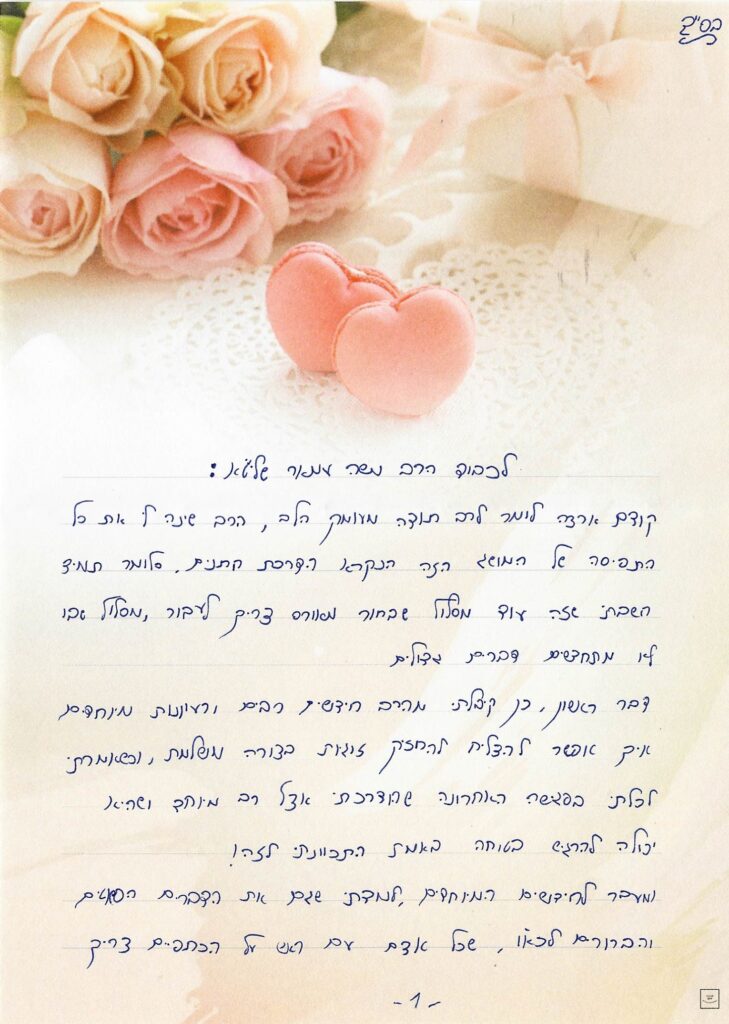 בס"ד
לכבוד הרב משה עמאר שליט"א:
קודם ארצה לומר לרב תודה מעומק הלב, הרב שינה לי את כל
התפיסה של המושג הזה הנקרא הדרכת חתנים. כלומר תמיד
חשבתי שזה עוד מסלול שבחור מאורס צריך לעבור, מסלול שבו
לא מתחדשים דברים גדולים
דבר ראשון, כן קיבלתי מהרב חידושים רבים ורעיונות מיוחדים
איך אפשר להצליח להחזיק זוגיות בצורה מושלמת, וכשאמרתי
לכלתי בפגישה האחרונה שהודרכתי אצל רב מיוחד ושהיא
יכולה להרגיש בטוחה באמת התכוונתי לזה!
ומעבר לחידושים המיוחדים, למדתי שגם את הדברים הפשוטים
והברורים לכאו', שכל אדם עם ראש על הכתפיים צריך
-1-